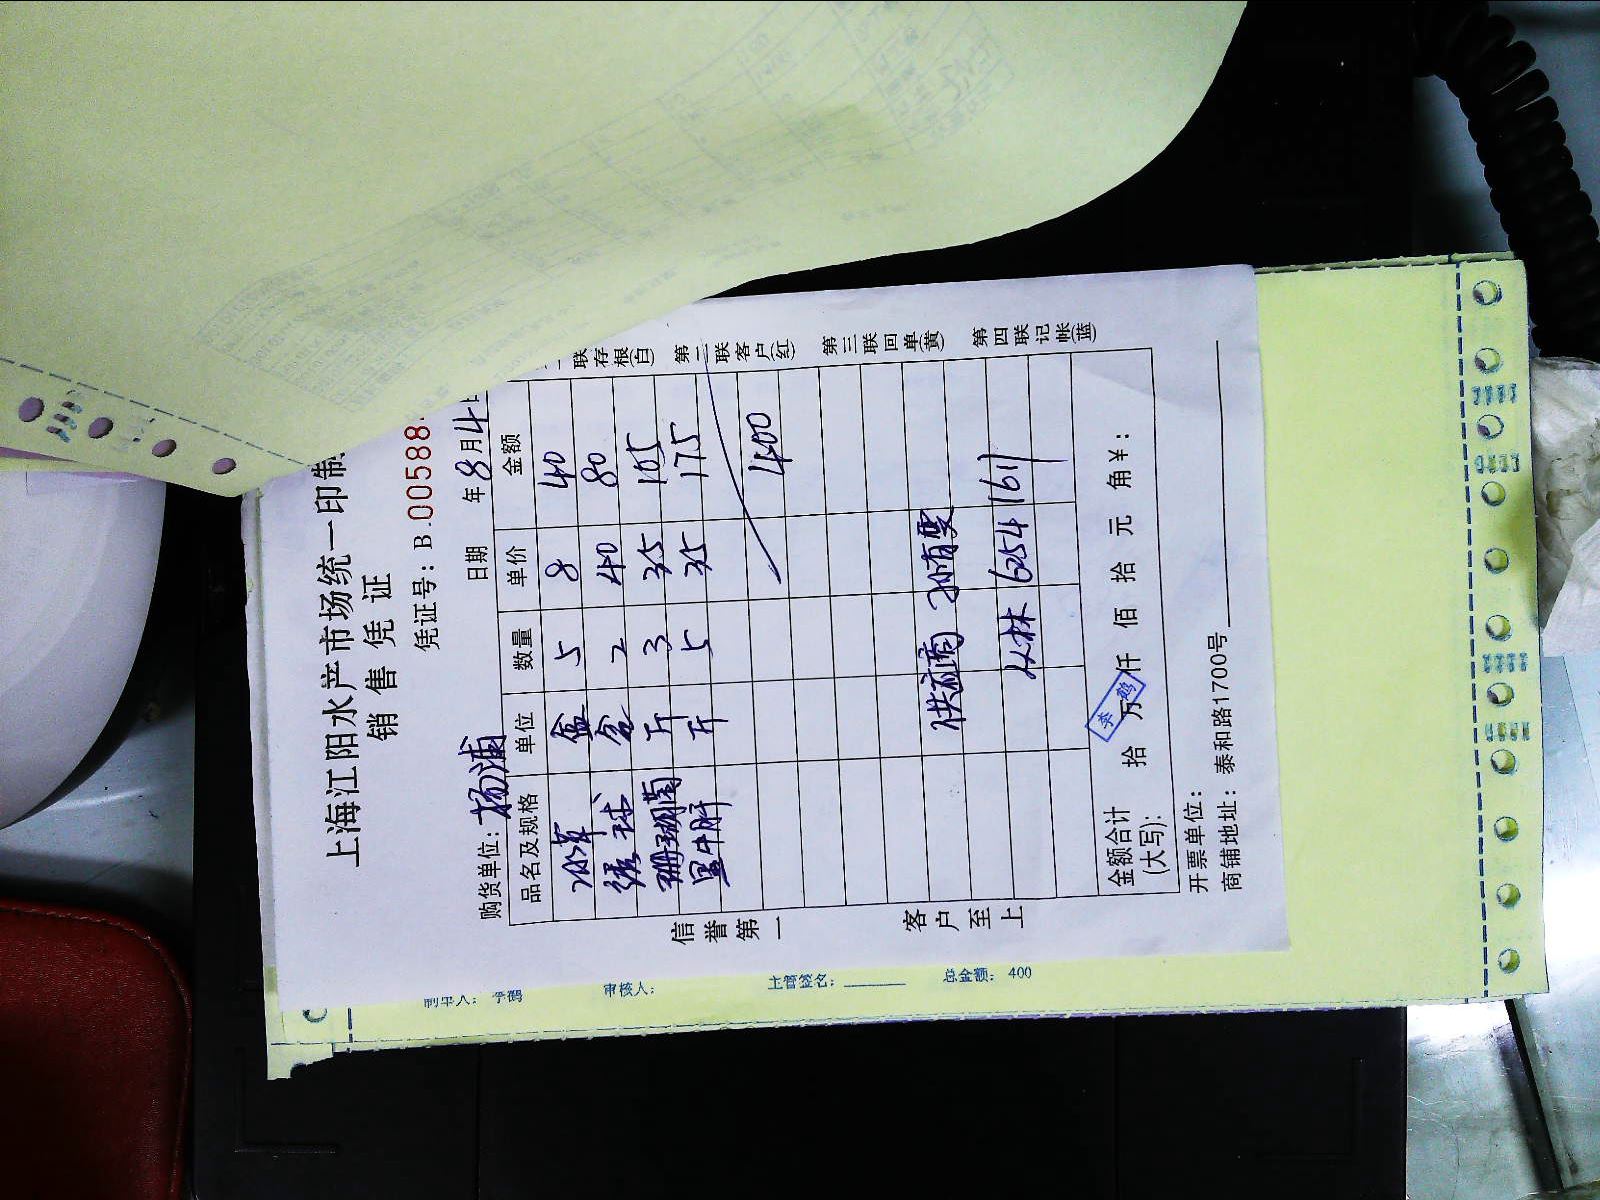 上海江阳水产市场统一印制
销售凭证
凭证号: B.00588
购货单位: 杨浦 日期 年8月4日
品名及规格 单位 数量 单价 金额
冰草 盒 5 8 40
绣球 盒 2 40 80
珊瑚菌 斤 3 35 105
黑牛肝 斤 5 35 175
400
供应商 孙有雯
6254 1611
金额合计
(大写):
拾 万 仟 佰 拾 元 角¥:
开票单位:
商铺地址: 泰和路1700号
信誉第一 客户至上
联存根(白) 第二联客户(红) 第三联回单(黄) 第四联记帐(蓝)
李鹤
制单人: 李鹤 审核人: 主管签名: 总金额: 400